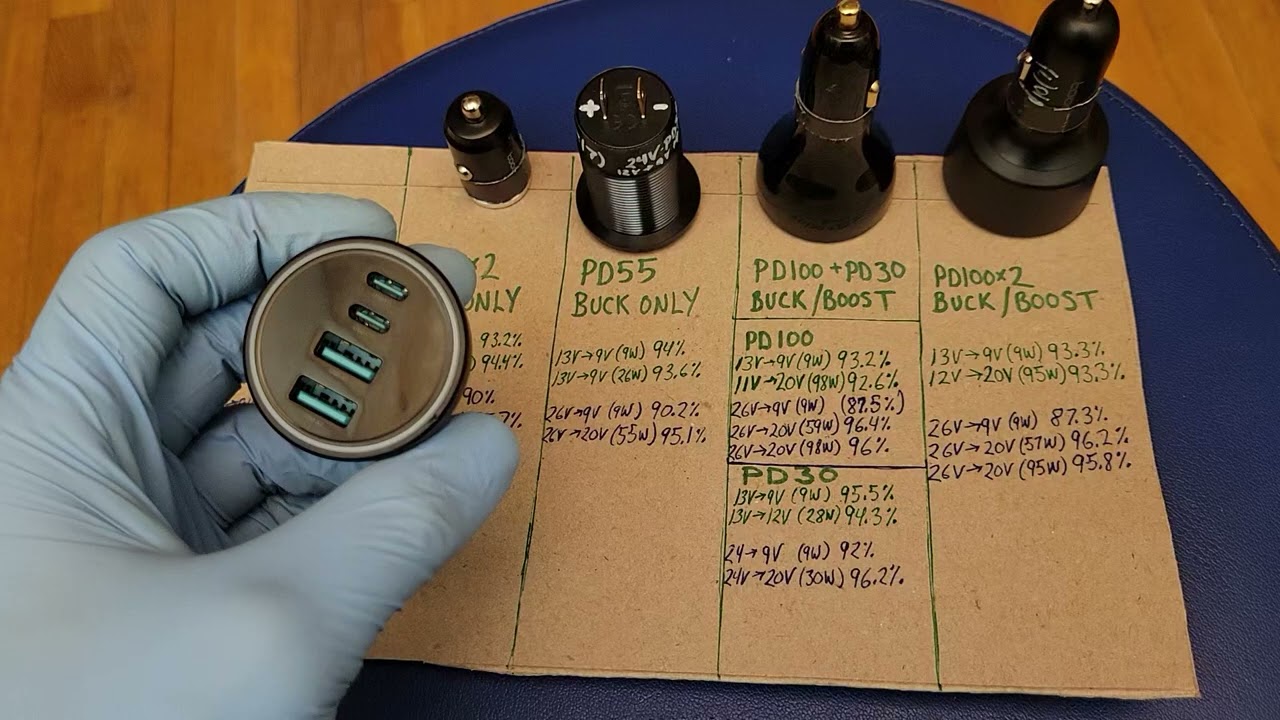 ×2
ONLY
93.2%
94.4%
90%
7%
PD55
BUCK ONLY
13V→9V (9W) 94%
13V→9V (26W) 93.6%
26V→9V (9W) 90.2%
26V→20V (55W) 95.1%
PD100 + PD30
BUCK/BOOST
PD100
13V→9V (9W) 93.2%
11V→20V (98W) 92.6%
26V→9V (9W) (87.5%)
26V→20V (59W) 96.4%
26V→20V (98W) 96%
PD30
13V→9V (9W) 95.5%
13V→12V (28W) 94.3%
24→9V (9W) 92%
24V→20V (30W) 96.2%
PD100×2
BUCK/BOOST
13V→9V (9W) 93.3%
12V→20V (95W) 93.3%
26V→9V (9W) 87.3%
26V→20V (57W) 96.2%
26V→20V (95W) 95.8%
+ -